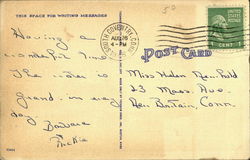 THIS SPACE FOR WRITING MESSAGES
Having a
wonderful time
The water is
Grand in every
day
Barbara
SOUTH COVENTRY, CONN.
AUG
4-PM
POST CARD
Miss Helen
23 Mass. Ave.
New Britain, Conn.
1¢